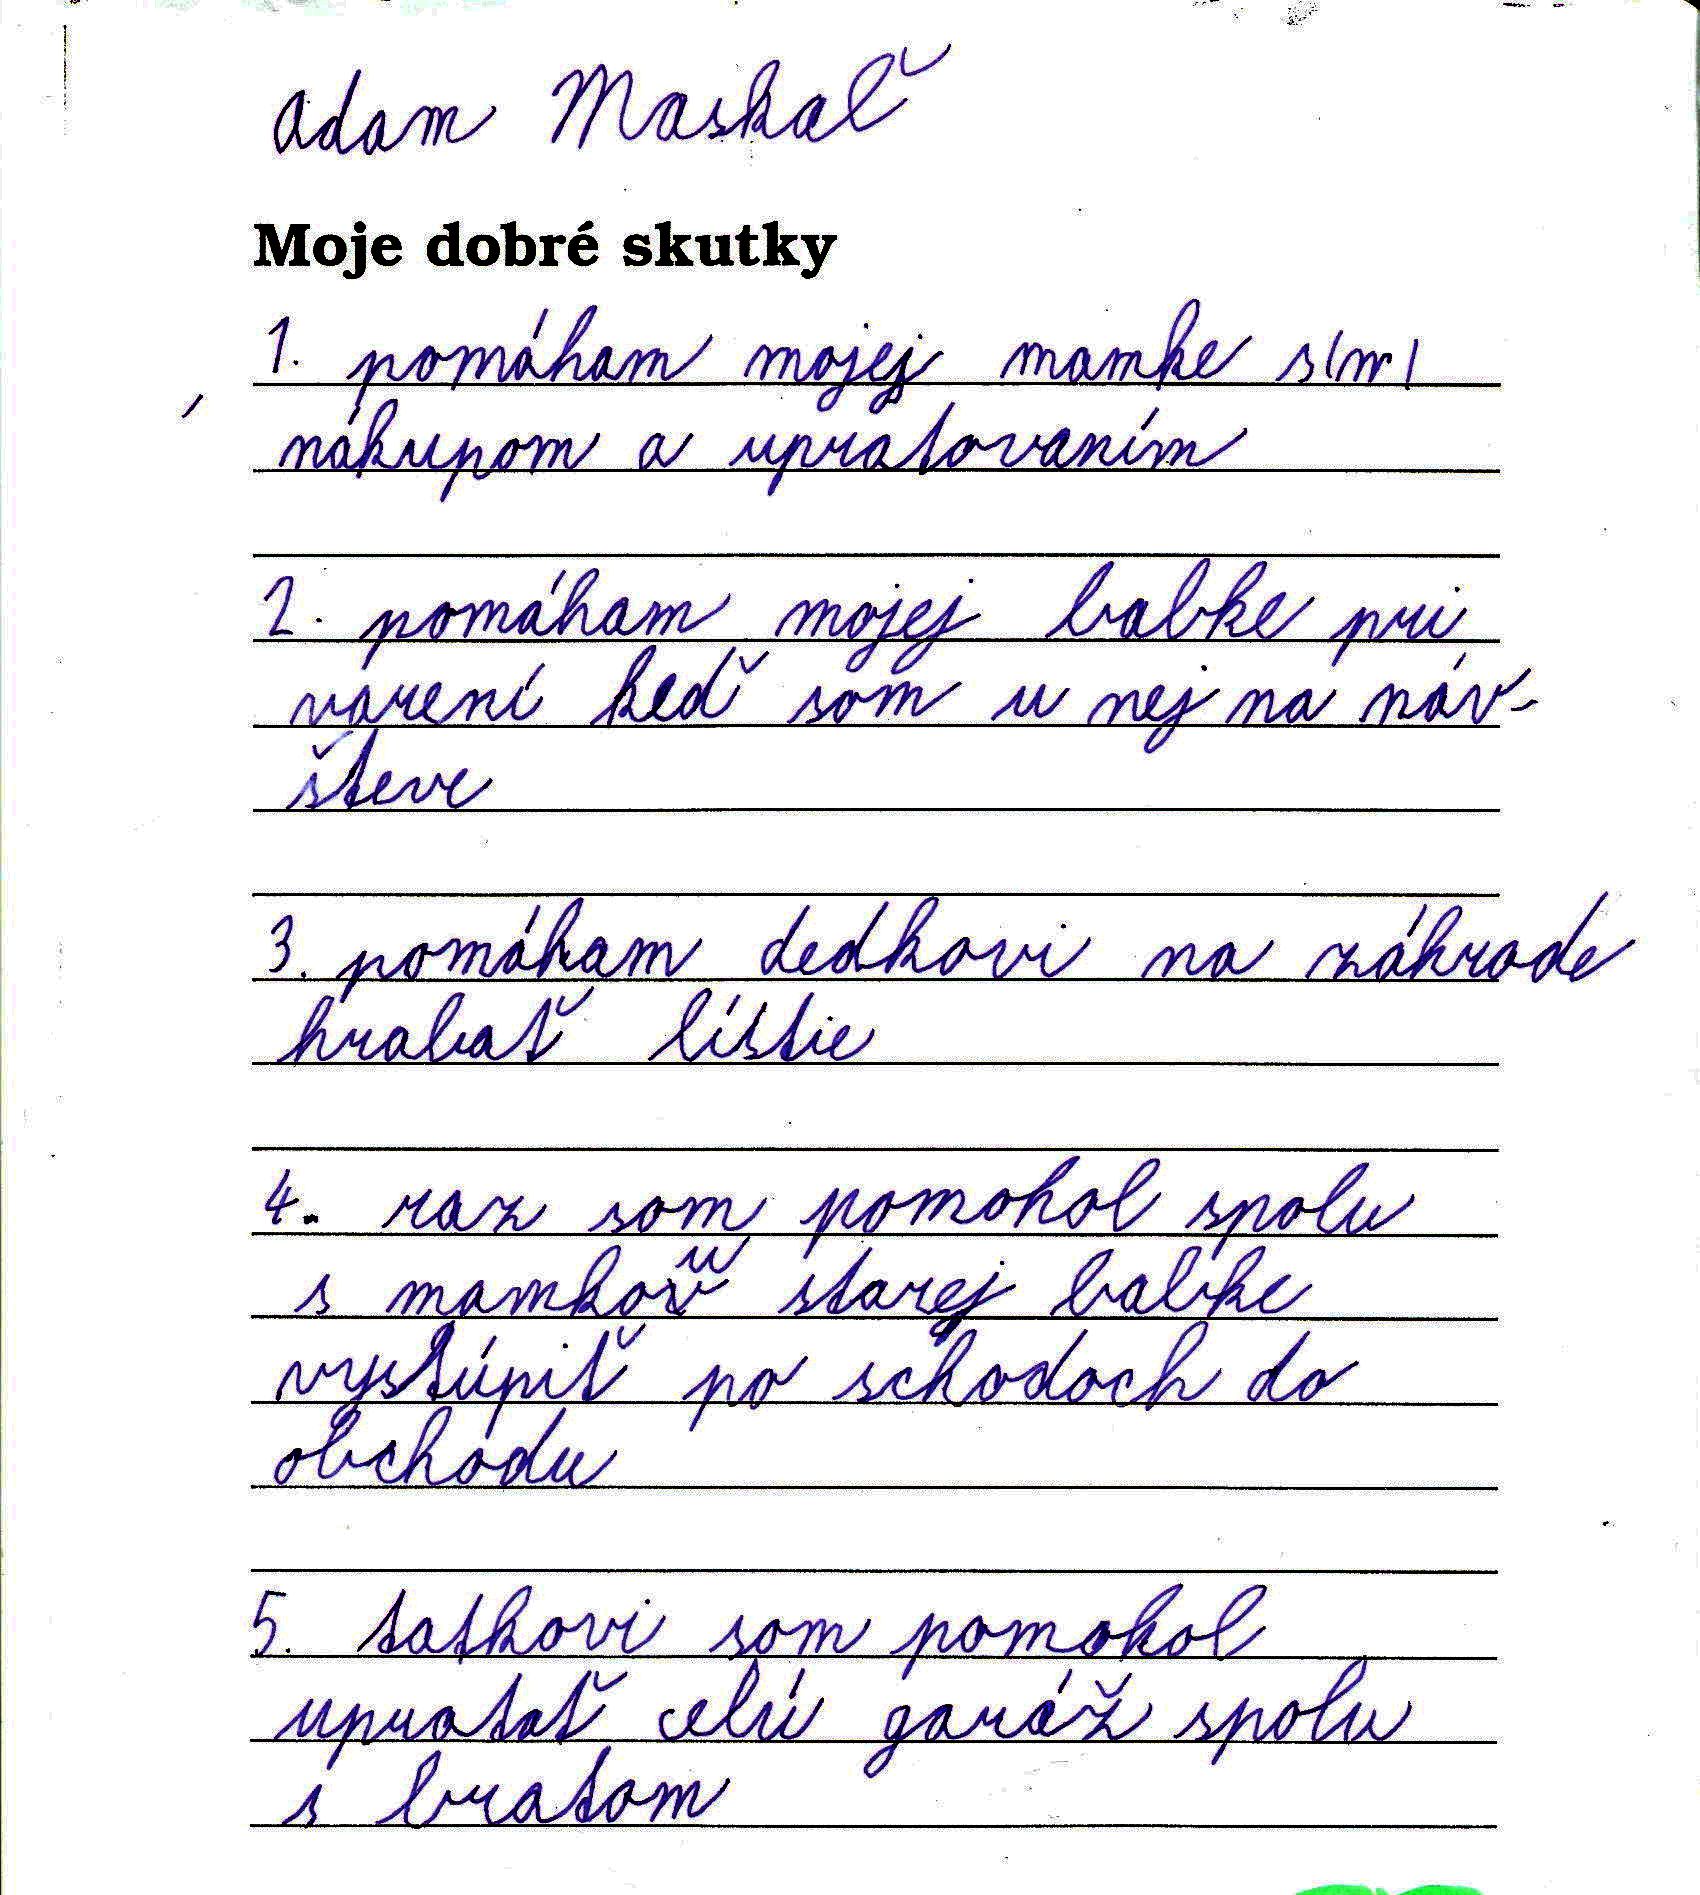 Adam Maskaľ
Moje dobré skutky
1. pomáham mojej mamke s(m)
nákupom a upratovaním
2. pomáham mojej babke pri
varení keď som u nej na náv-
števe
3. pomáham dedkovi na záhrade
hrabať lístie
4. raz som pomohol spolu
s mamkou starej babke
vystúpiť po schodoch do
obchodu
5. tatkovi som pomohol
upratať celú garáž spolu
s bratom